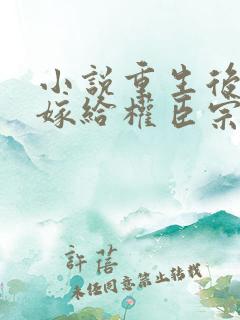 小說重生後
嫁給權臣宗
許蓓
未經同意禁止轉載